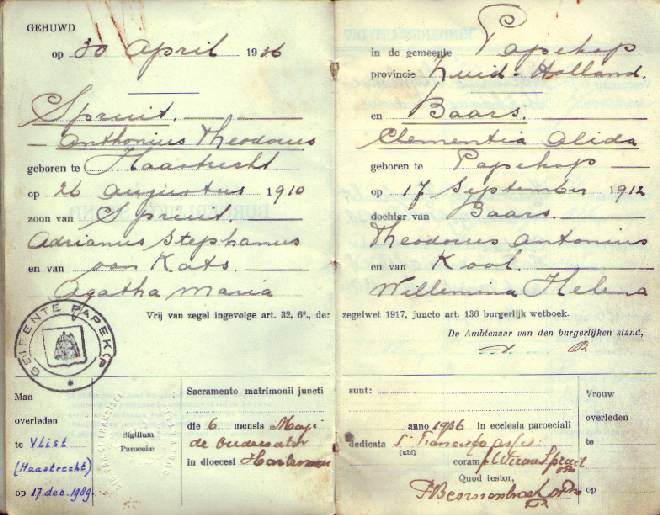 GEHUWD
op 30 April 1936
Spruit.
Anthonius Theodorus
geboren te Haastrecht
op 26 Augustus 1910
zoon van Spruit
Adrianus Stephanus
en van van Kats
Agatha Maria
in de gemeente Papekop
provincie Zuid-Holland.
en Baars.
Clementia Alida
geboren te Papekop
op 17 September 1912
dochter van Baars.
Theodorus Antonius
en van Kool.
Willemina Helena
Vrij van zegel ingevolge art. 32, 6°, der zegelwet 1917, juncto art. 130 burgerlijk wetboek.
De Ambtenaar van den burgerlijken stand,
GEMEENTE PAPEKOP
Man
overleden
te Vlist
(Haastrecht)
op 17 dec. 1989.
Sigillum
Parociae
Sacramento matrimonii juncti
die 6 mensis Maji
de Oudewater
in dioecesi Haarlemen
sunt:
anno 1936 in ecclesia paroeciali
dedicata St Francisco
coram
Quod testor,
Vrouw
overleden
te
op